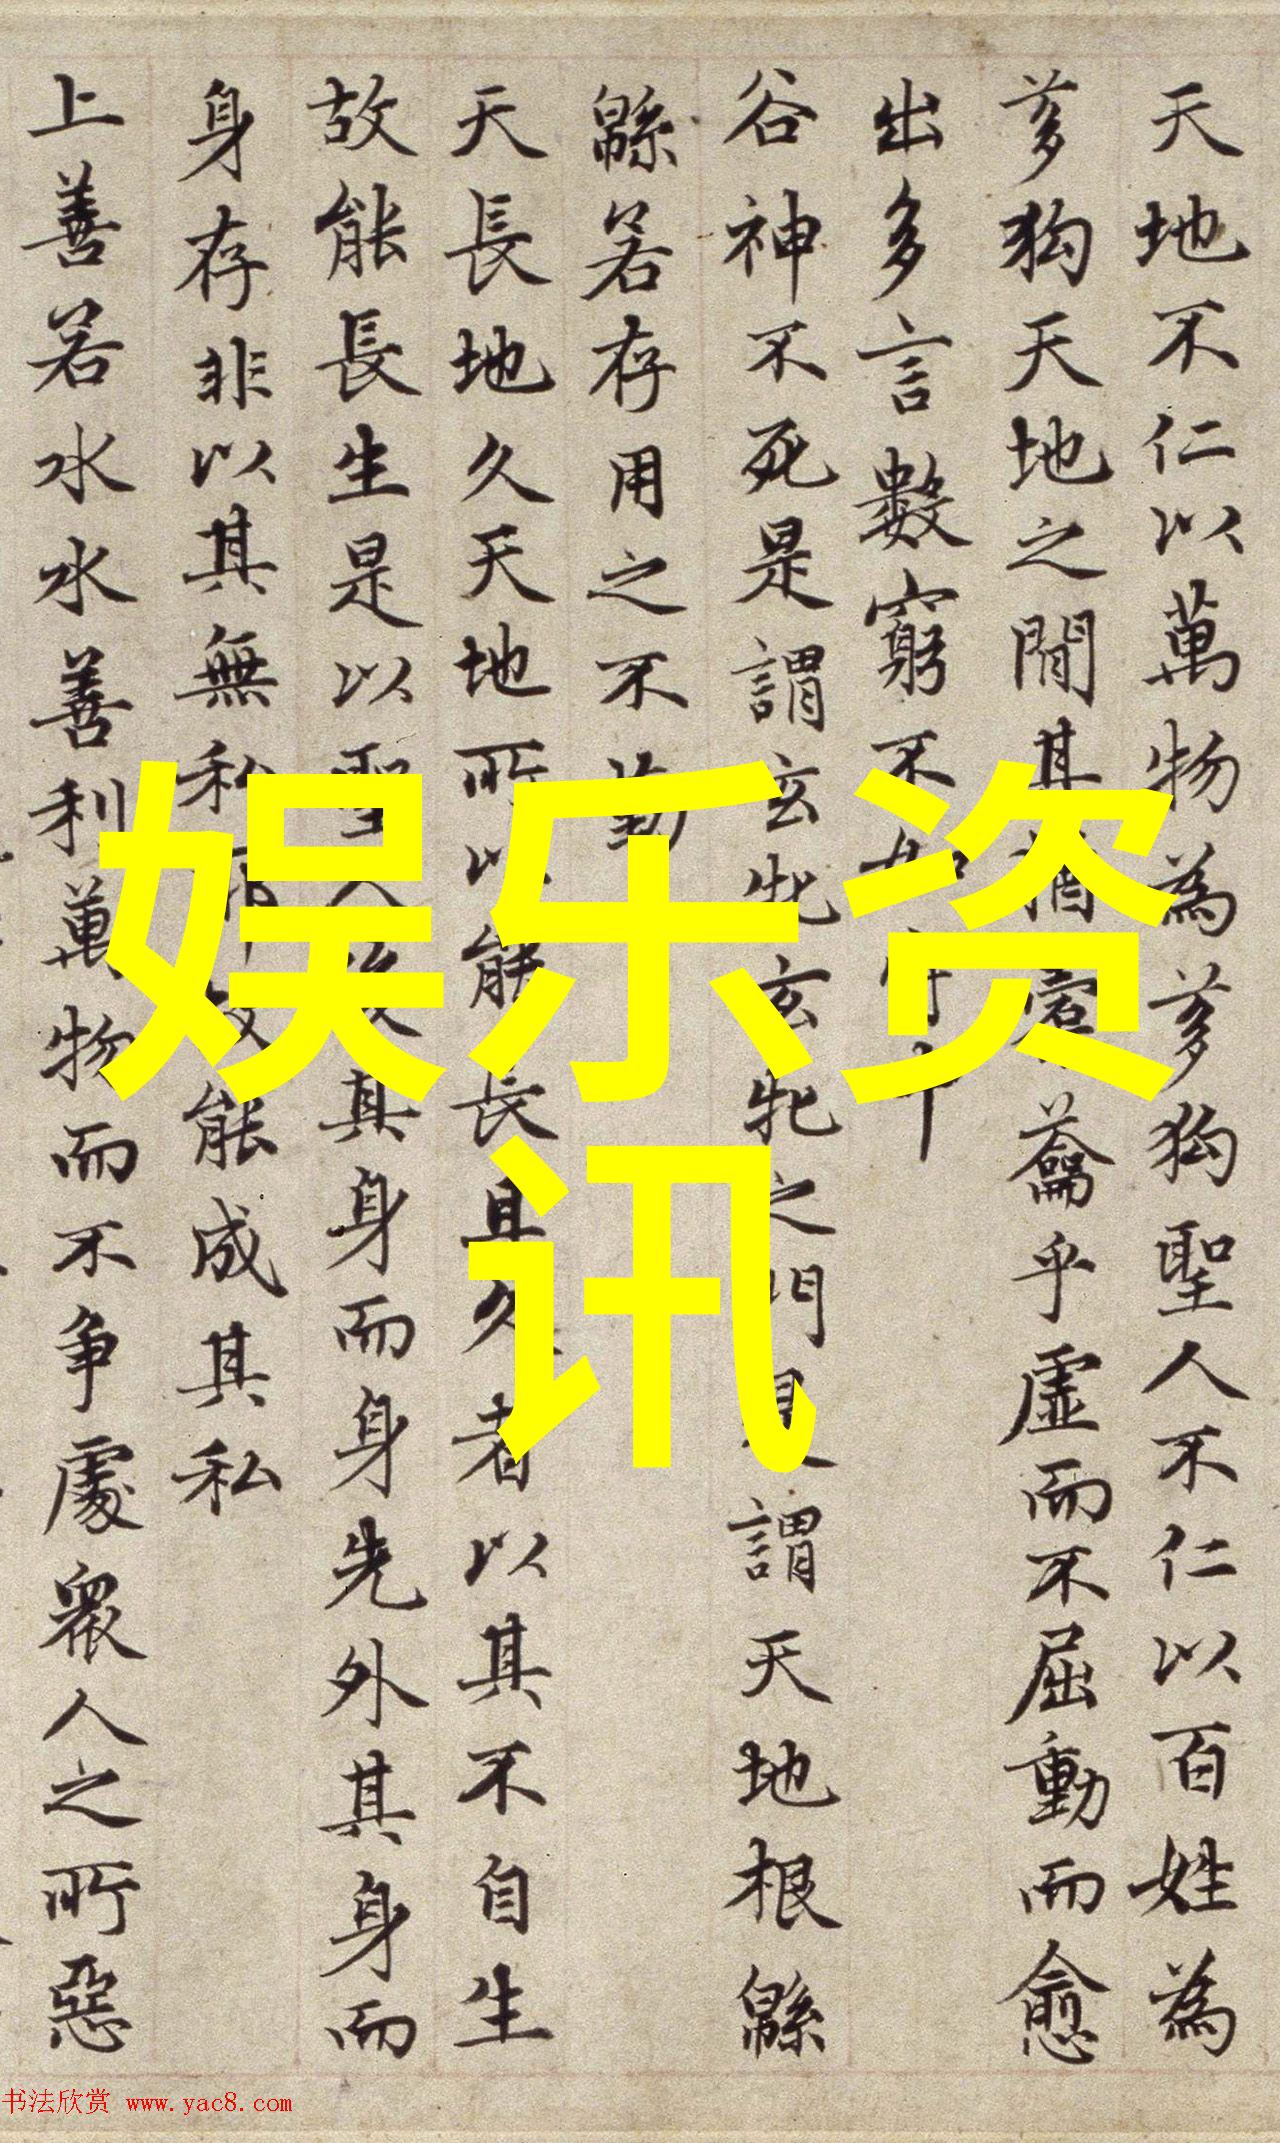 天地不仁以萬物為芻狗聖人不仁以百姓為
芻狗天地之間其猶橐籥乎虛而不屈動而愈
出多言數窮不如守中
谷神不死是謂玄牝玄牝之門是謂天地根緜
緜若存用之不勤
天長地久天地所以能長且久者以其不自生
故能長生是以聖人後其身而身先外其身而
身存非以其無私耶故能成其私
上善若水水善利萬物而不爭處眾人之所惡
娱乐资
讯
书法欣赏 www.yac8.com